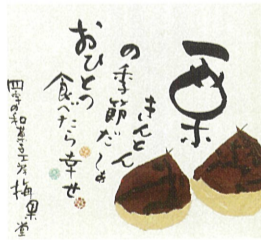 栗
きんとん
の季節だ〜ぁ
おひとつ
食べたら幸せ
四季の和菓子工房 梅果堂